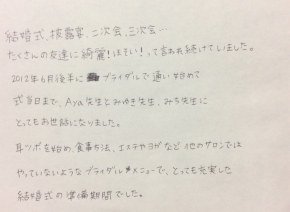 結婚式、披露宴、二次会、三次会…
たくさんの友達に綺麗!ほそい!って言われ続けていました。
2012年6月後半にブライダルで通い始めて
式当日まで、Aya先生とみゆき先生、みき先生に
とってもお世話になりました。
耳ツボを始め、食事方法、エステやヨガなど他のサロンでは
やっていないようなブライダルメニューで、とっても充実した
結婚式の準備期間でした。